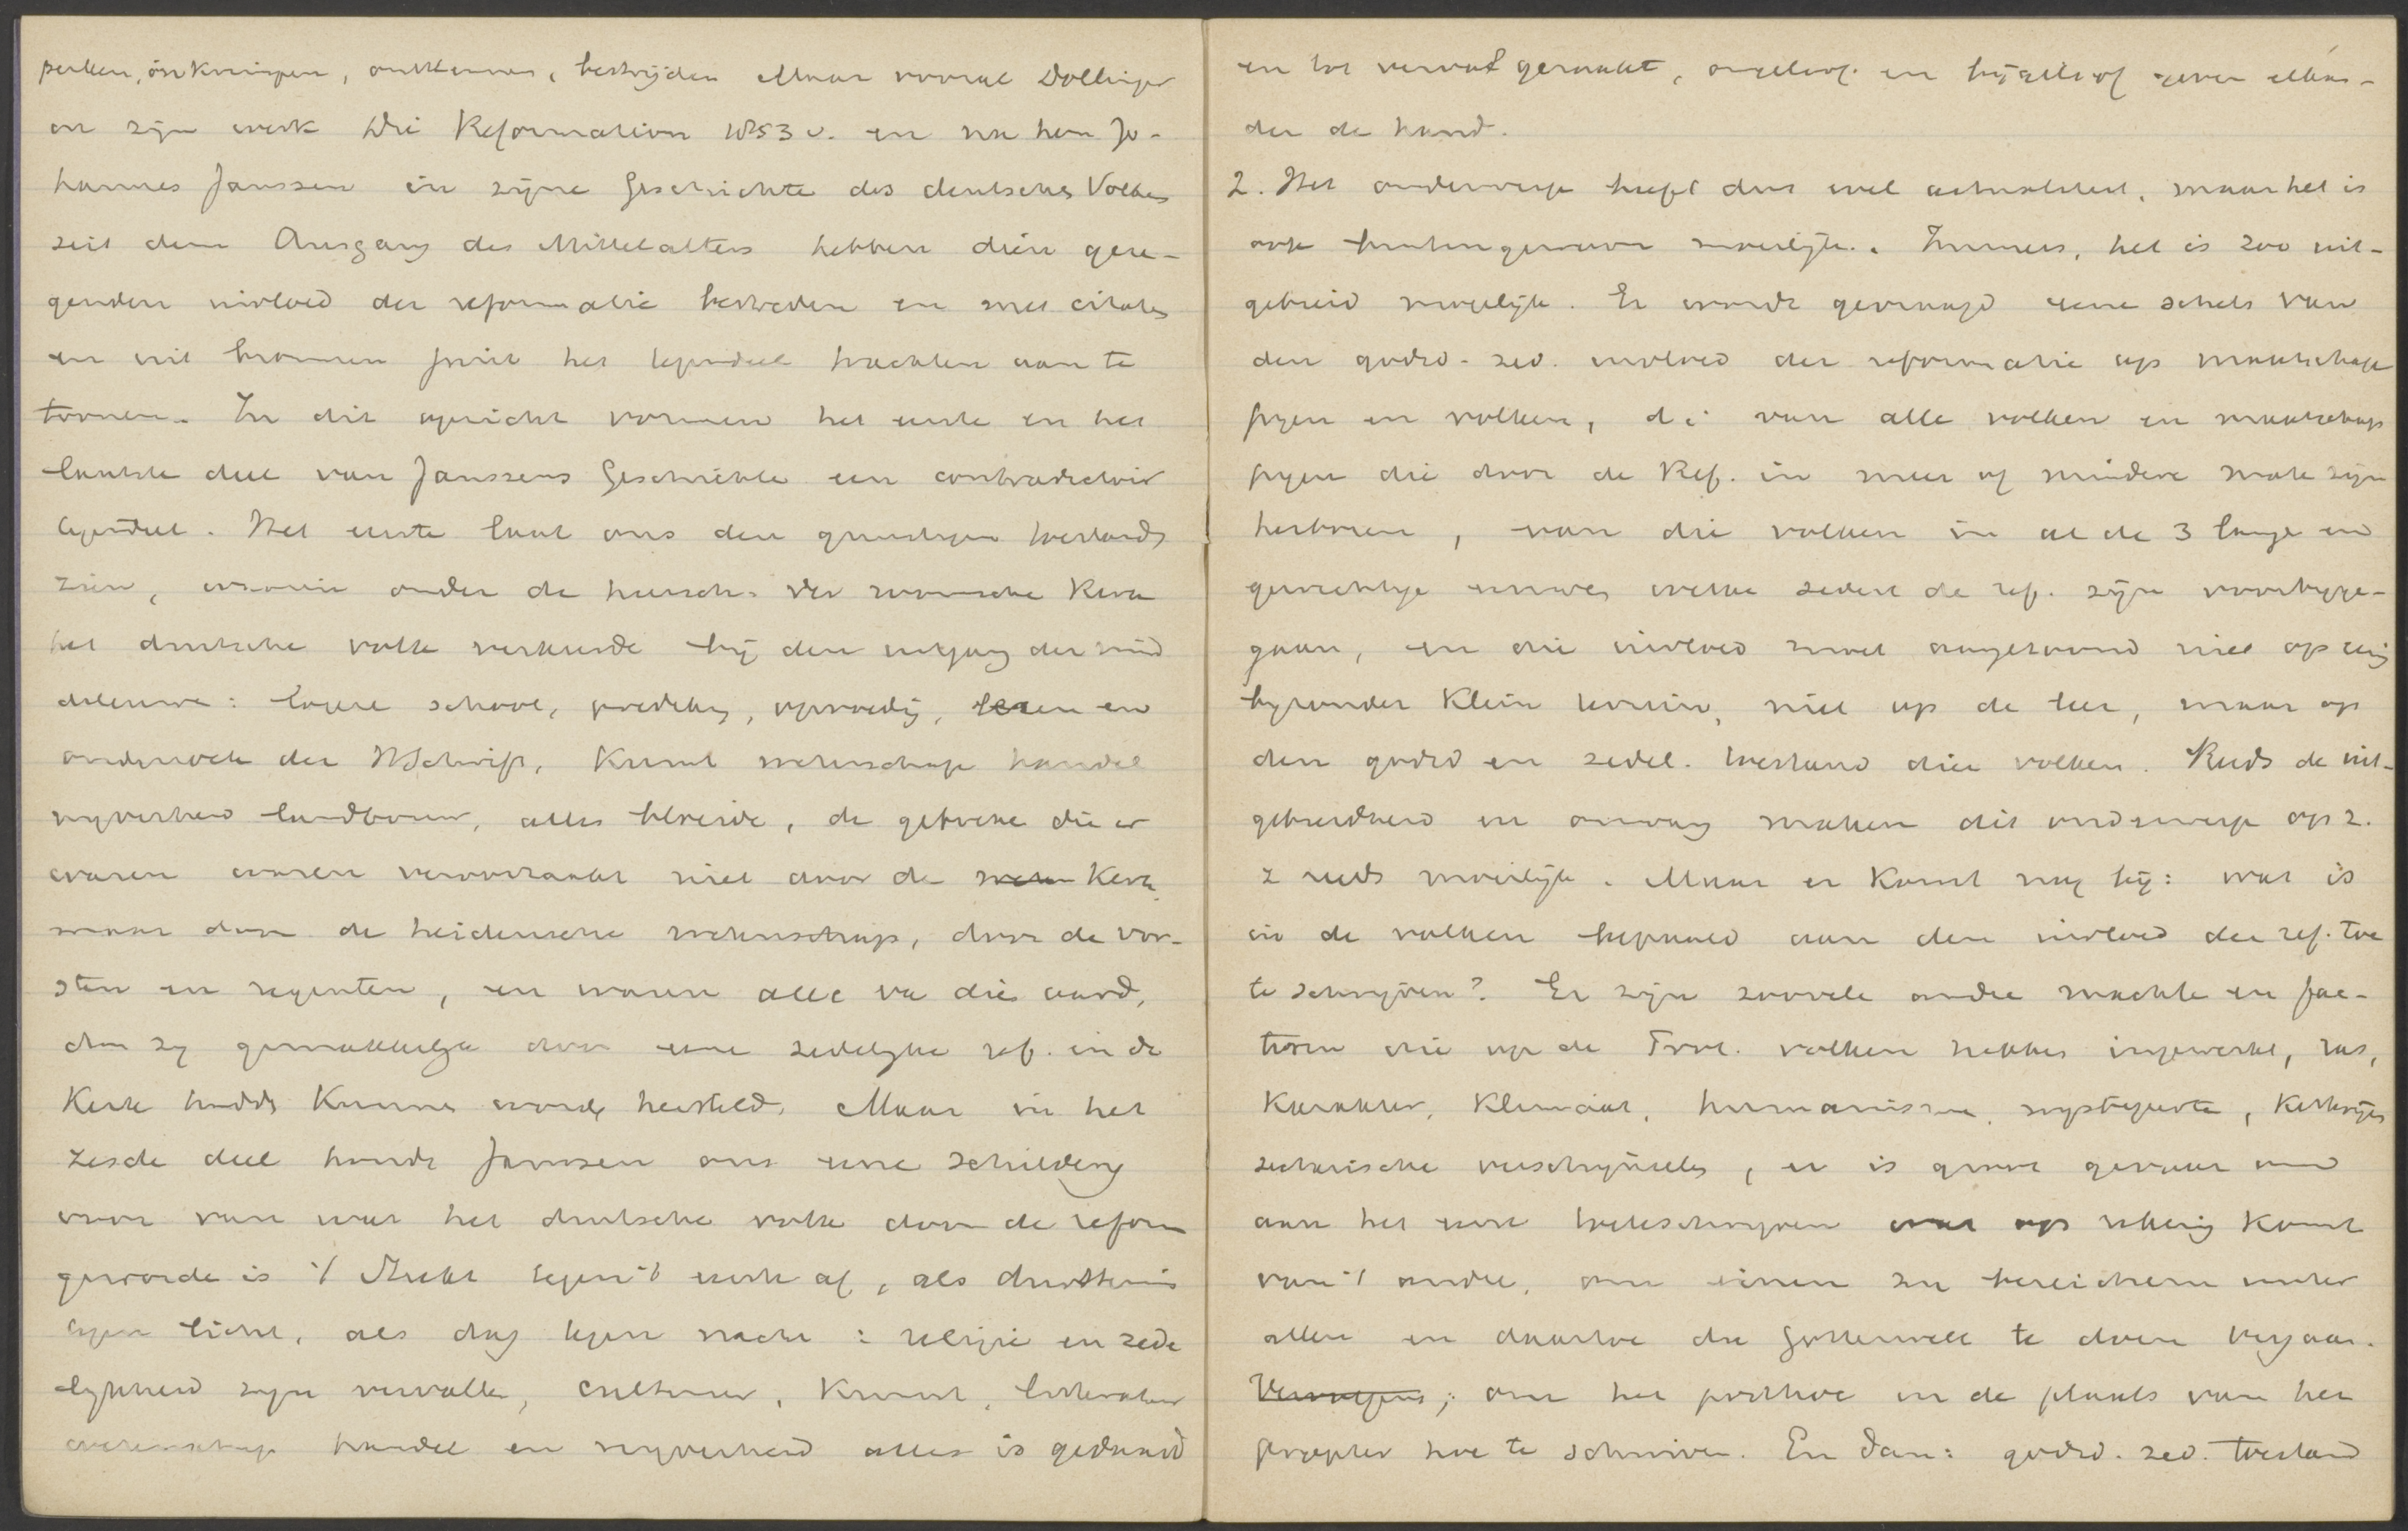 perken, inkrimpen, ontkennen, bestrijden Maar vooral Döllinger
en zijn werk Die Reformation 1853 v. en na hem Jo-
hannes Janssen in zijne Geschichte des deutschen Volkes
seit dem Ausgang des Mittelalters hebben dien geze-
genden invloed der reformatie bestreden en met citaten
en uit bronnen juist het tegendeel trachten aan te
toonen. In dit opzicht vormen het eerste en het
laatste deel van Janssens Geschichte een contradictoir
tegendeel. Het eerste laat ons den gunstigen toestand
zien, waarin onder de heersch. der roomsche Kerk
het deutsche volk verkeerde bij den uitgang der mid
deleeuwen: lagere school, prediking, opvoeding, lezen en
onderzoek der HSchrift, Kunst wetenschap handel
nyverheid landbouw, alles bloeide, de gebreken die er
waren waren veroorzaakt niet door de Kerk,
maar door de heidensche wetenschap, door de vor-
sten en regenten, en waren alle van dien aard,
dan zy gemakkelyk door eene zedelyke ref. in de
Kerk hadden Kunnen worden hersteld. Maar in het
zesde deel houdt Janssen ons eene schildering
voor van wat het deutsche volk door de reform
geworden is 't Steekt tegen 't eerste af, als duisternis
tegen licht, als dag tegen nacht: religie en zede
lykheid zyn vervallen, cultuur, Kunst, litteratuur
wetenschap handel en nyverheid alles is gedaald
en tot verval geraakt, ongeloof en bijgeloof geven elkan-
der de hand.
2. Het onderwerp heeft dus wel actualiteit, maar het is
ook buitengewoon moeilijk. Immers, het is zoo uit-
gebreid mogelijk. Er wordt gevraagd eene schets van
den godsd-zed. invloed der reformatie op maatschap
pyen en volken, d.i van alle volken en maatschap
pyen die door de Ref. in meer of mindere mate zijn
herboren, van die volken in al de 3 lange en
gewichtige eeuwen welke sedert de ref. zijn voorbyge-
gaan, en die invloed moet aangetoond niet op eenig
byzonder Klein terrein, niet op de leer, maar op
den godsd en zedel. toestand dier volken. Reeds de uit-
gebreidheid en omvang maken dit onderwerp op z.
z reeds moeilijk. Maar er Komt nog bij: wat is
in de volken bepaald aan den invloed der ref. toe
te schryven? Er zijn zoovele andere machten en fac-
toren die op de Prot. volken hebben ingewerkt, ras,
Karakter, Klimaat, humanisme, mystiek,
sectarische verschijnselen, er is groot gevaar om
aan het eene toeteschryven wat op rekening Komt
van 't andere, om einen zu bereichern unter
allen en daartoe die Götterwelt te doen vergaan.
Vervolgens; om het posthoc in de plaats van het
propter hoc te schuiven. En dan: godsd. zed. toestand